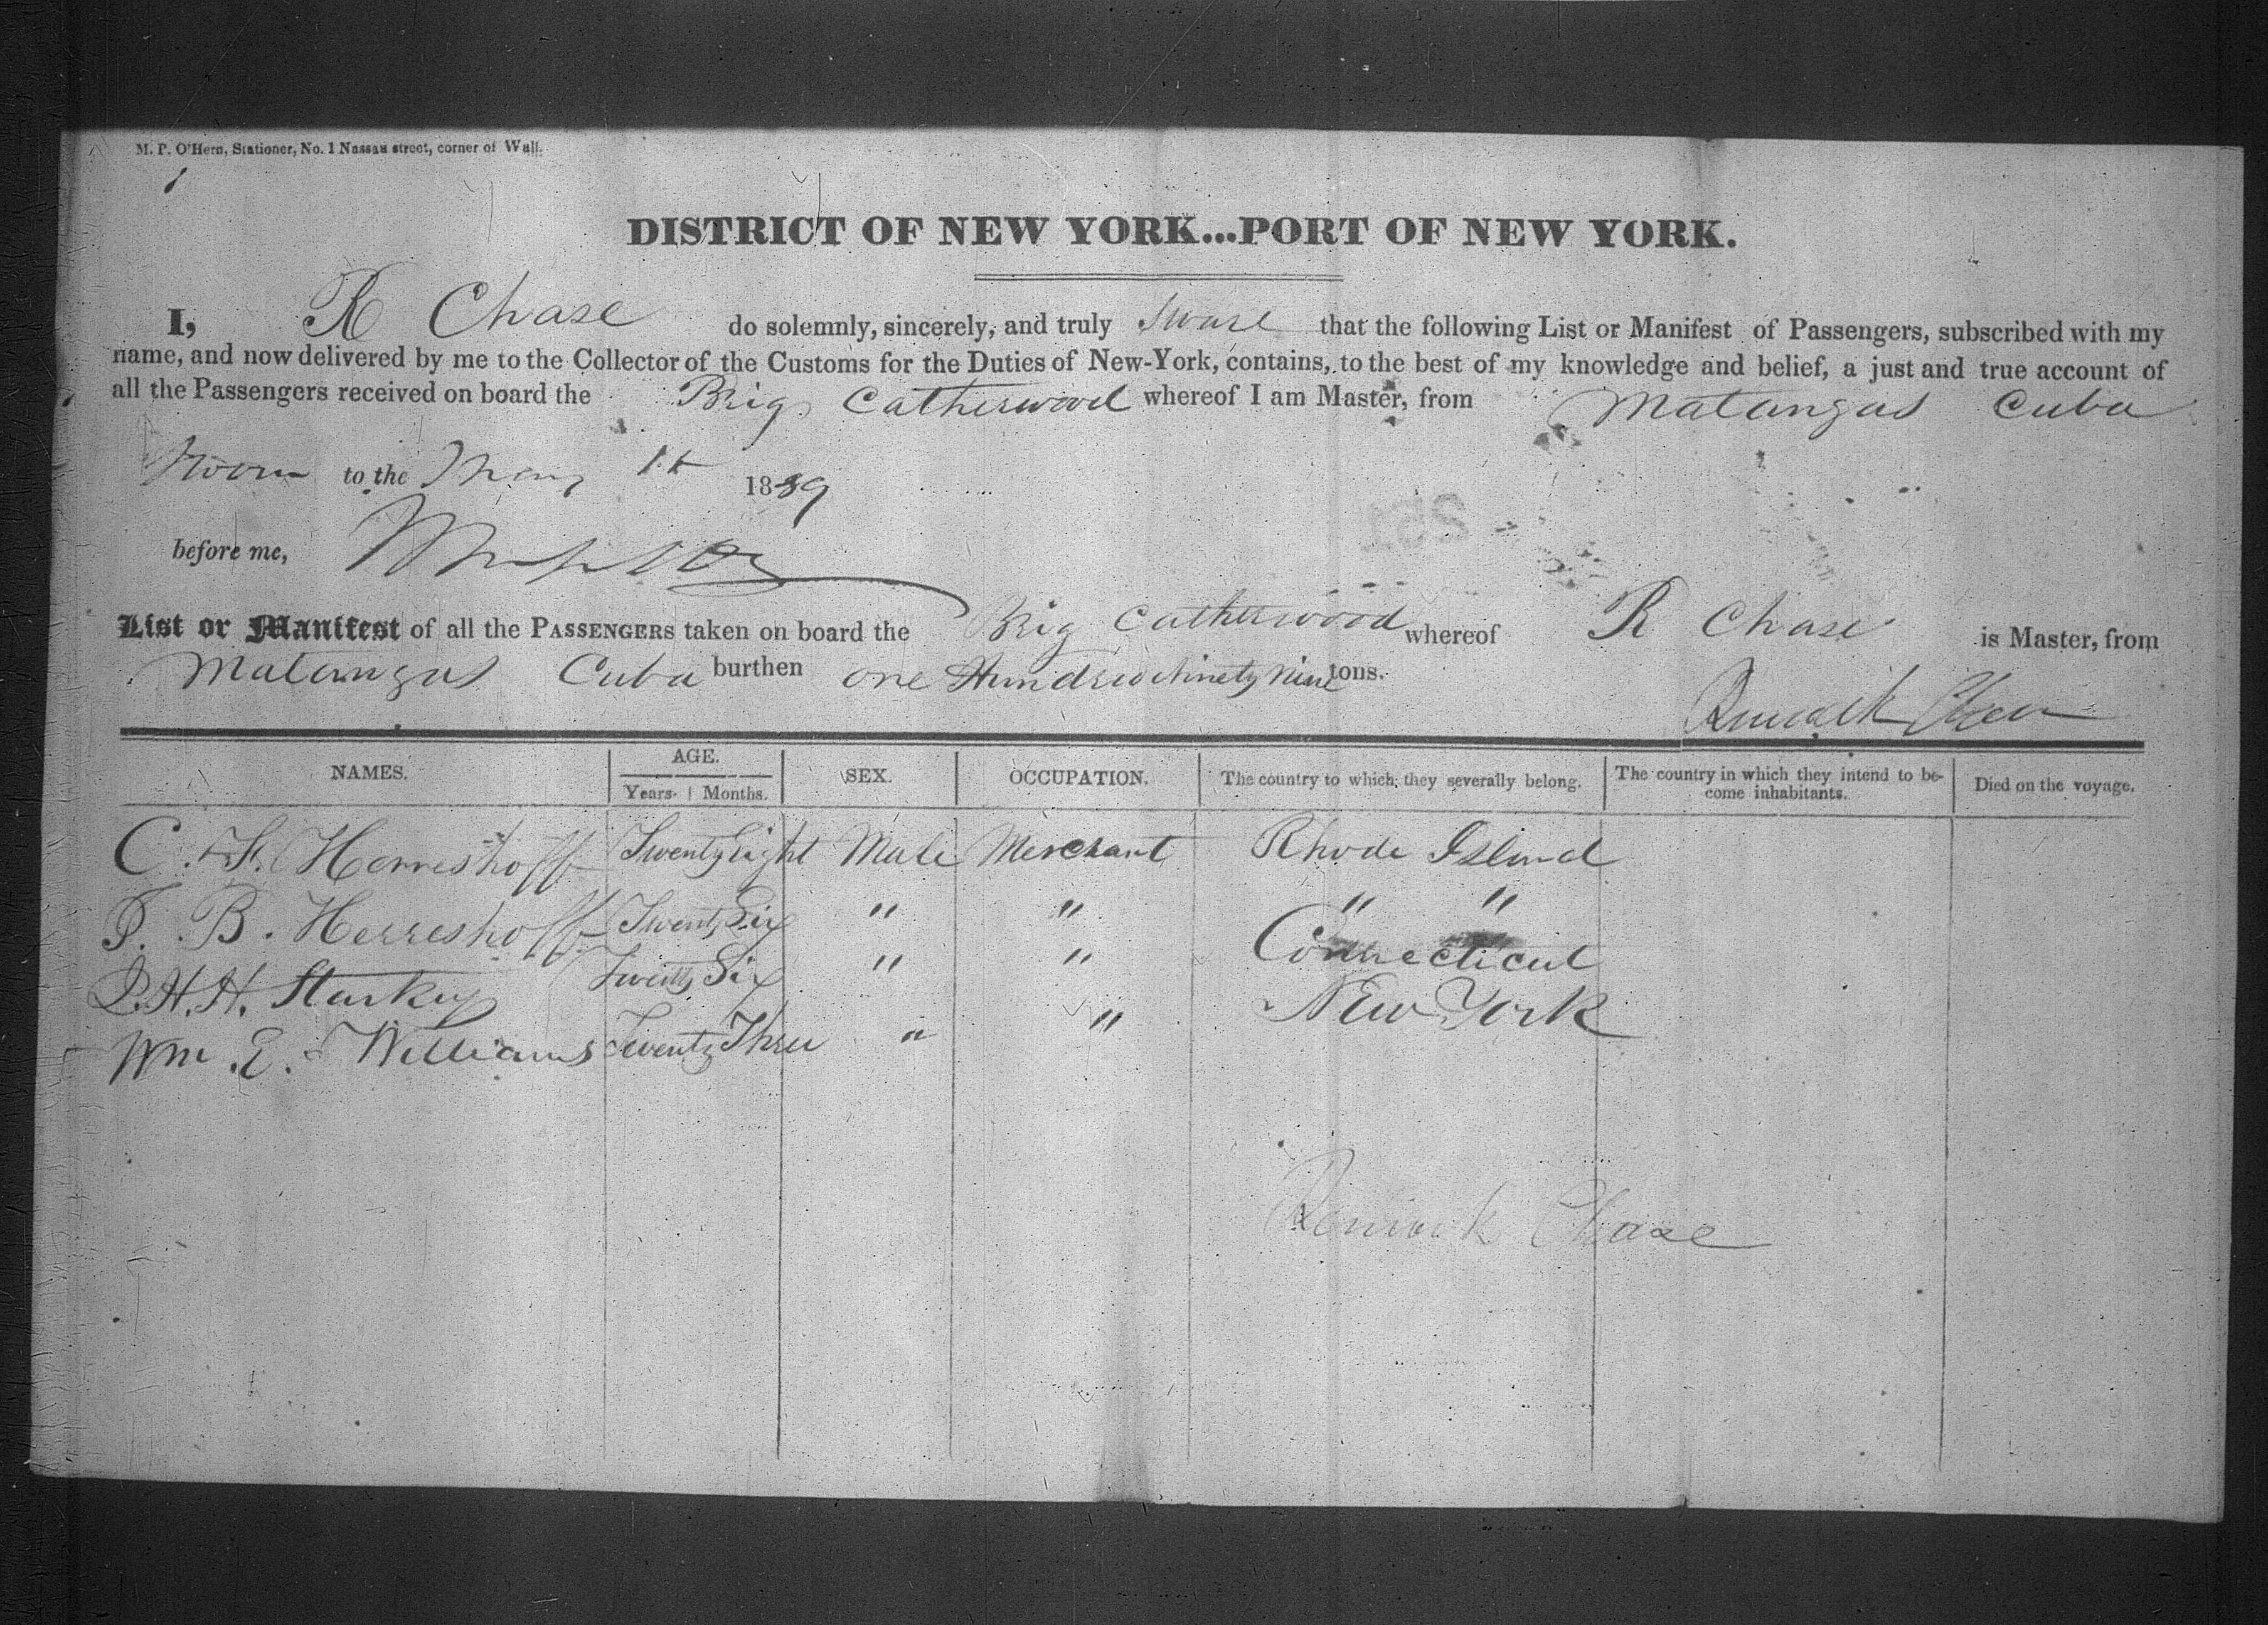 M. P. O'Hern, Stationer, No. 1 Nassau street, corner of Wall.
DISTRICT OF NEW YORK...PORT OF NEW YORK.
I, R Chase do solemnly, sincerely, and truly sware that the following List or Manifest of Passengers, subscribed with my
name, and now delivered by me to the Collector of the Customs for the Duties of New-York, contains, to the best of my knowledge and belief, a just and true account of
all the Passengers received on board the Brig Catherwood whereof I am Master, from Matangas Cuba
to the May 1st 1839
before me,
List or Manifest of all the PASSENGERS taken on board the Brig Catherwood whereof R Chase is Master, from
Matangas Cuba burthen one Hundred Ninety Nine tons.
Renwick Chase
NAMES. AGE. SEX. OCCUPATION. The country to which they severally belong. The country in which they intend to be- Died on the voyage.
Years. Months. come inhabitants.
C. F. Herreshoff Twenty Eight Male Merchant Rhode Island
J. B. Herreshoff Twenty Six " " " "
H. H. Starkey Twenty Six " " Connecticut
Wm. E. Williams Twenty Three " " New York
Renwick Chase